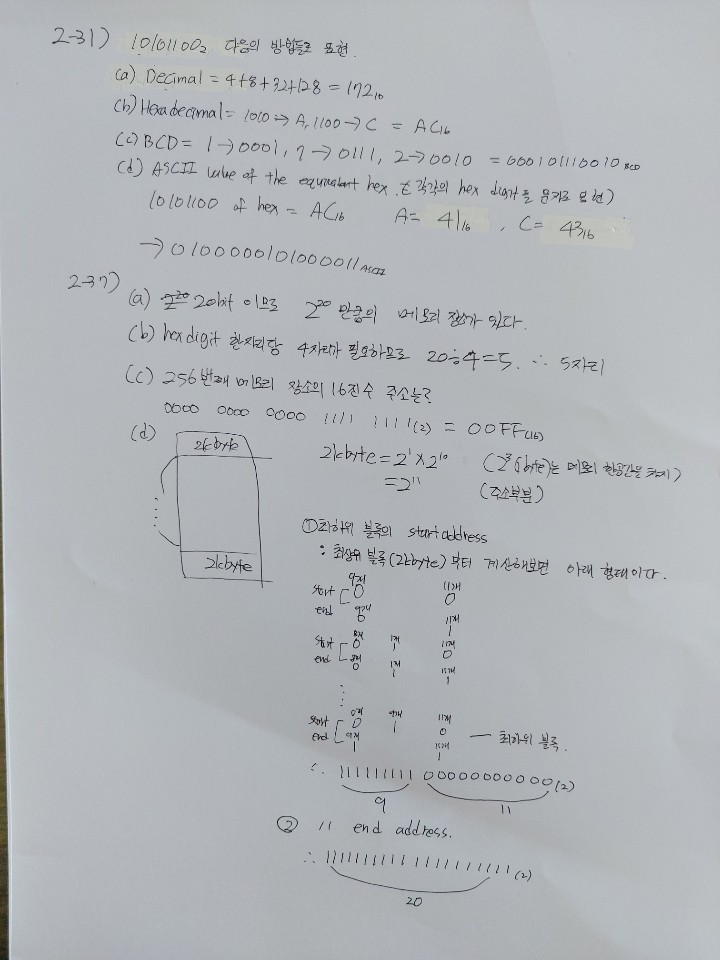 2-31) 10101100₂ 다음의 방법들로 표현.
(a) Decimal = 4+8+32+128 = 172₁₀
(b) Hexadecimal = 1010 → A, 1100 → C = AC₁₆
(c) BCD = 1 → 0001, 7 → 0111, 2 → 0010 = 000101110010 BCD
(d) ASCII value of the equivalent hex. 각각의 hex digit를 문자로 표현)
10101100 of hex = AC₁₆ A = 41₁₆, C = 43₁₆
→ 0100000101000011 ASCII
2-37)
(a) 20bit 이므로 2²⁰ 만큼의 메모리 장소가 있다.
(b) hex digit 한자리당 4자리가 필요하므로 20÷4=5. ∴ 5자리
(c) 256번째 메모리 장소의 16진수 주소는?
0000 0000 0000 1111 1111(2) = 00FF(16)
(d)
2kbyte
2kbyte
2kbyte = 2¹ × 2¹⁰ (는 메모리 한공간을 차지)
= 2¹¹ (주소부분)
① 최하위 블록의 start address
: 최상위 블록(2kbyte)부터 계산해보면 아래 형태이다.
9개 11개
start 0 0
end 9개 0 11개 1
start 8개 0 1개 1 11개 0
end 8개 0 1개 1 11개 1
⋮
start 0개 0 9개 1 11개 0
end 9개 1 11개 1 — 최하위 블록.
∴ 111111111 00000000000(2)
9 11
② 〃 end address.
∴ 11111111111111111111(2)
20